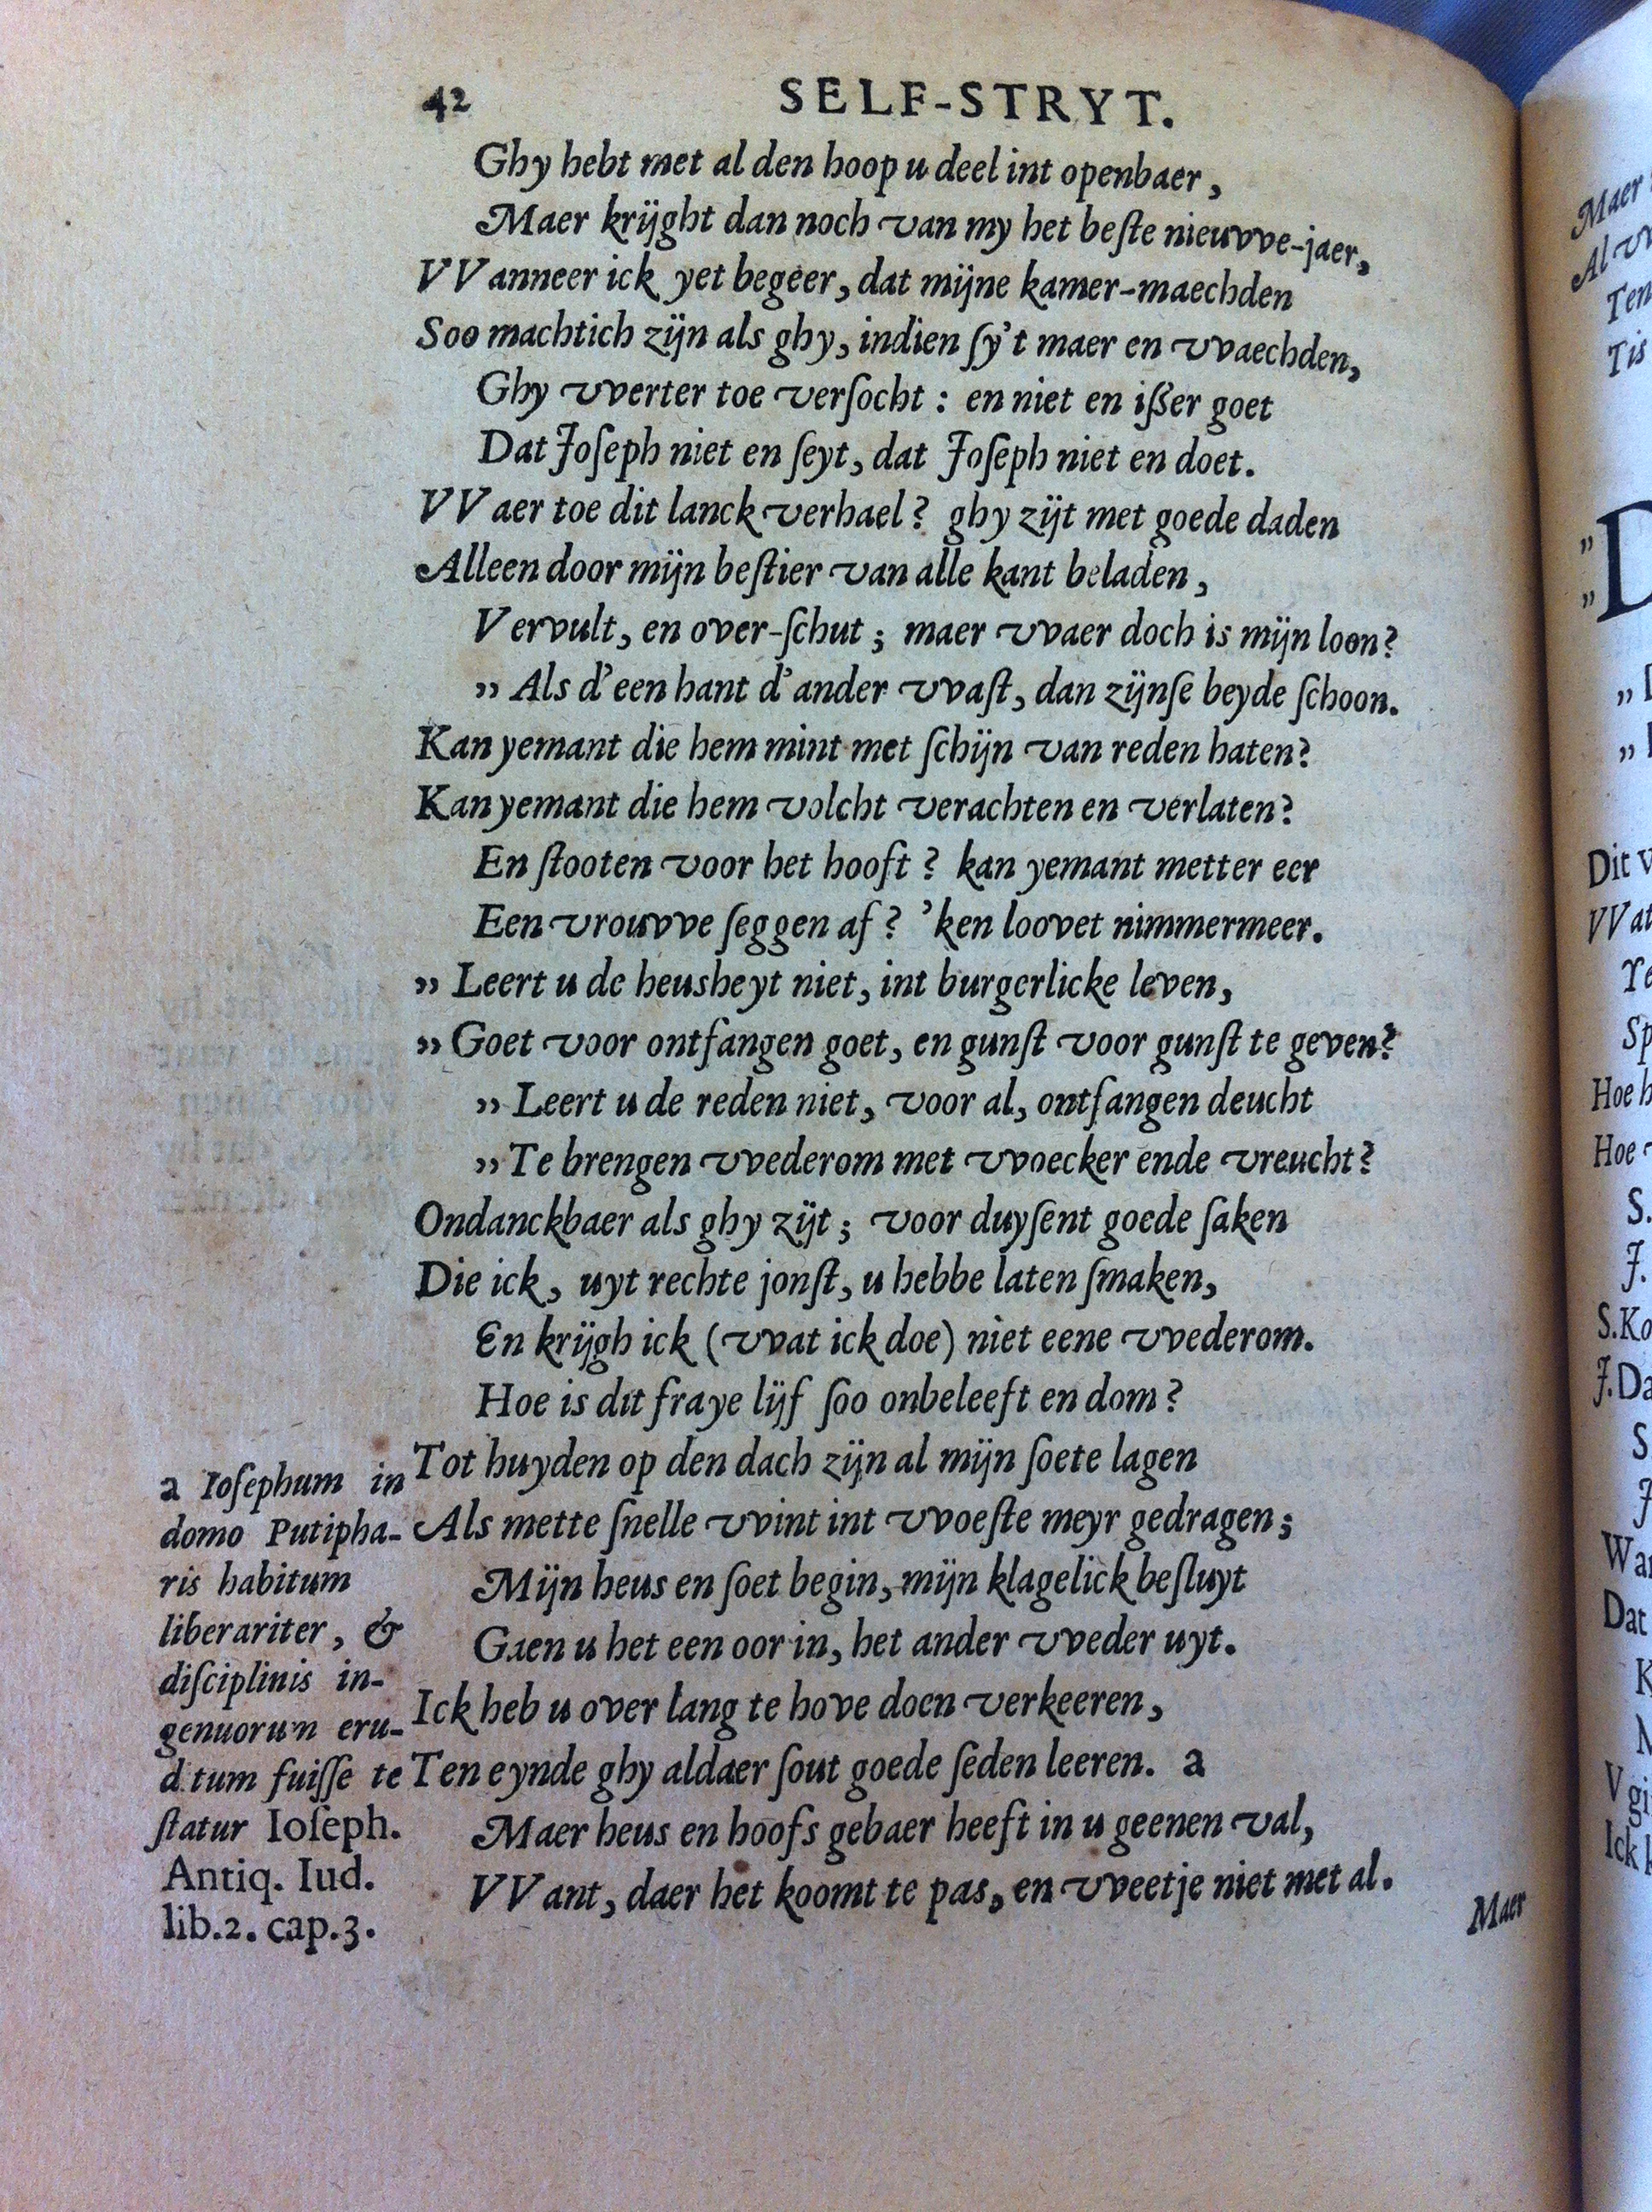 42 SELF-STRYT.
Ghy hebt met al den hoop u deel int openbaer,
Maer krijght dan noch van my het beſte nieuvve-jaer,
VVanneer ick yet begeer, dat mijne kamer-maechden
Soo machtich zijn als ghy, indien ſy't maer en vvaechden,
Ghy vverter toe verſocht : en niet en ißer goet
Dat Joſeph niet en ſeyt, dat Joſeph niet en doet.
VVaer toe dit lanck verhael? ghy zijt met goede daden
Alleen door mijn beſtier van alle kant beladen,
Vervult, en over-ſchut ; maer vvaer doch is mijn loon?
„ Als d'een hant d'ander vvaſt, dan zijnſe beyde ſchoon.
Kan yemant die hem mint met ſchijn van reden haten?
Kan yemant die hem volcht verachten en verlaten?
En ſtooten voor het hooft ? kan yemant metter eer
Een vrouvve ſeggen af ? 'ken loovet nimmermeer.
„ Leert u de heusheyt niet, int burgerlicke leven,
„ Goet voor ontfangen goet, en gunſt voor gunſt te geven?
„ Leert u de reden niet, voor al, ontfangen deucht
„ Te brengen vvederom met vvoecker ende vreucht?
Ondanckbaer als ghy zijt ; voor duyſent goede ſaken
Die ick, uyt rechte jonſt, u hebbe laten ſmaken,
En krijgh ick (vvat ick doe) niet eene vvederom.
Hoe is dit fraye lijf ſoo onbeleeft en dom ?
Tot huyden op den dach zijn al mijn ſoete lagen
Als mette ſnelle vvint int vvoeſte meyr gedragen ;
Mijn heus en ſoet begin, mijn klagelick beſluyt
Gaen u het een oor in, het ander vveder uyt.
Ick heb u over lang te hove doen verkeeren,
Ten eynde ghy aldaer ſout goede ſeden leeren. a
Maer heus en hoofs gebaer heeft in u geenen val,
VVant, daer het koomt te pas, en vveetje niet met al.
Maer
a Ioſephum in
domo Putipha-
ris habitum
liberariter, &
diſciplinis in-
genuorum eru-
d.tum fuiſſe te
ſtatur Ioſeph.
Antiq. Iud.
lib.2. cap.3.
Maer
Ten
Tis
„
„ D
„
„
Dit
VVat
Hoe
Hoe
S.
J.
S.Ko
J.Da
S
J
Wa
Dat
K
Ick